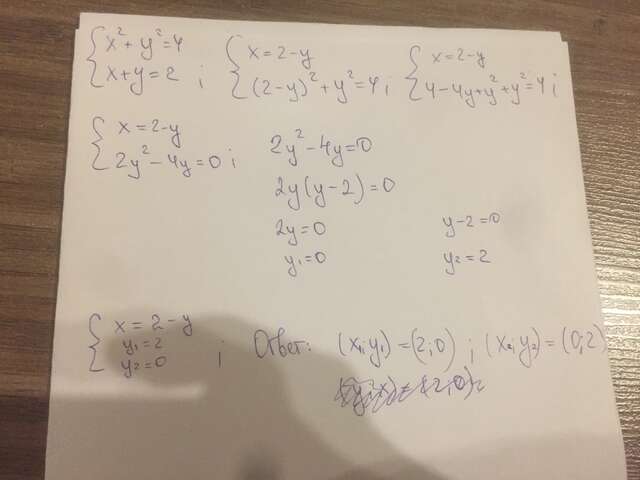 { x² + y² = 4 { x = 2 - y { x = 2 - y
{ x + y = 2 ; { (2 - y)² + y² = 4 ; { 4 - 4y + y² + y² = 4 ;
{ x = 2 - y 2y² - 4y = 0
{ 2y² - 4y = 0 ; 2y(y - 2) = 0
2y = 0 y - 2 = 0
y₁ = 0 y₂ = 2
{ x = 2 - y
{ y₁ = 2
y₂ = 0 ; Ответ: (x₁; y₁) = (2; 0) ; (x₂; y₂) = (0; 2)